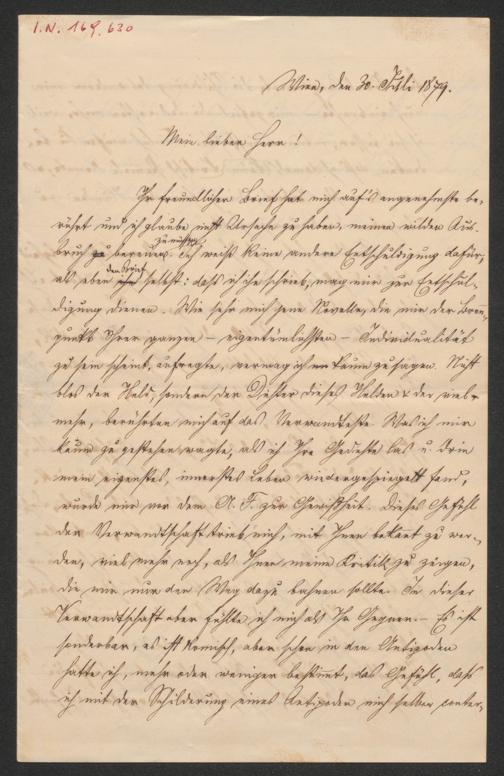 I.N. 169.630
Wien, den 30. Juli 1879.
Mein lieber Herr!
Ihr freundlicher Brief hat mich auf's angenehmste be-
rührt und ich glaube nicht Ursache zu haben, meinen wilden Aus-
bruch zu bereuen. Ich weiß keine andere Entschuldigung dafür,
zu müssen
als eben den Brief selbst: daß ich ihn schrieb, mag mir zur Entschul-
digung dienen. Wie sehr mich jene Novelle, die mir der Brenn-
punkt Ihrer ganzen – eigentümlichsten – Individualität
zu sein scheint, aufregte, vermag ich kaum zu sagen. Nicht
blos der Held, sondern der Dichter dieses Helden & der viel-
mehr, berührten mich auf das Verwandteste. Was ich mir
kaum zu gestehen wagte, als ich Ihre Gedichte las u. drin
mein eigenstes, innerstes Leben wiedergespiegelt fand,
wurde mir vor dem A. F. zur Gewißheit. Dieses Gefühl
der Verwandtschaft trieb mich, mit Ihnen bekannt zu wer-
den, viel mehr noch, als Ihnen meine Kritik zu zeigen,
die mir nur den Weg dazu bahnen sollte. In dieser
Verwandtschaft aber fühlte ich mich als Ihr Gegner. – Es ist
sonderbar, es ist komisch, aber schon in den Antipoden
hatte ich, mehr oder weniger bestimmt, das Gefühl, daß
ich mit der Schilderung eines Antipoden mich selber conter-